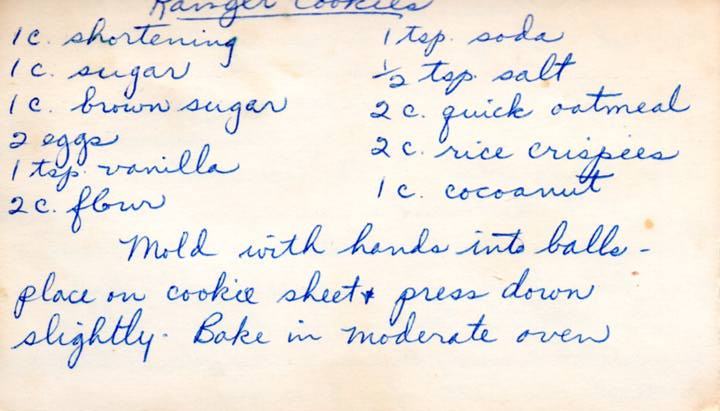 Ranger Cookies
1 c. shortening
1 c. sugar
1 c. brown sugar
2 eggs
1 tsp. vanilla
2 c. flour
1 tsp. soda
½ tsp. salt
2 c. quick oatmeal
2 c. rice crispies
1 c. cocoanut
Mold with hands into balls -
place on cookie sheet & press down
slightly. Bake in moderate oven